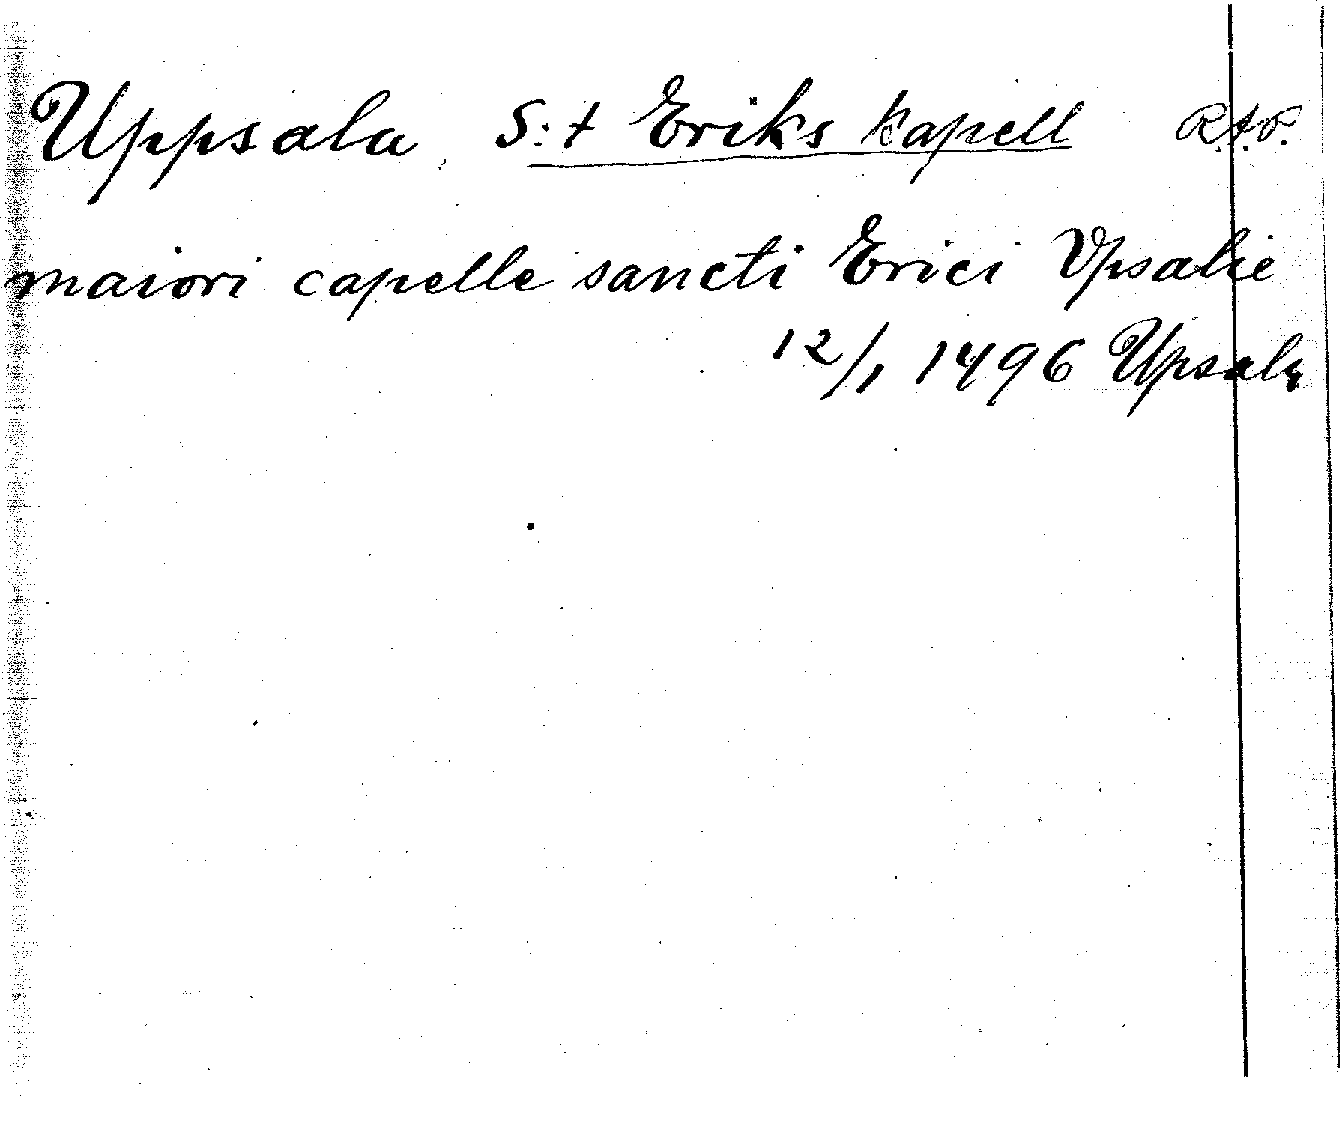 Uppsala, S:t Eriks kapell R.A.P.
maiori capelle sancti Erici Vpsalie
12/1 1496 Upsala